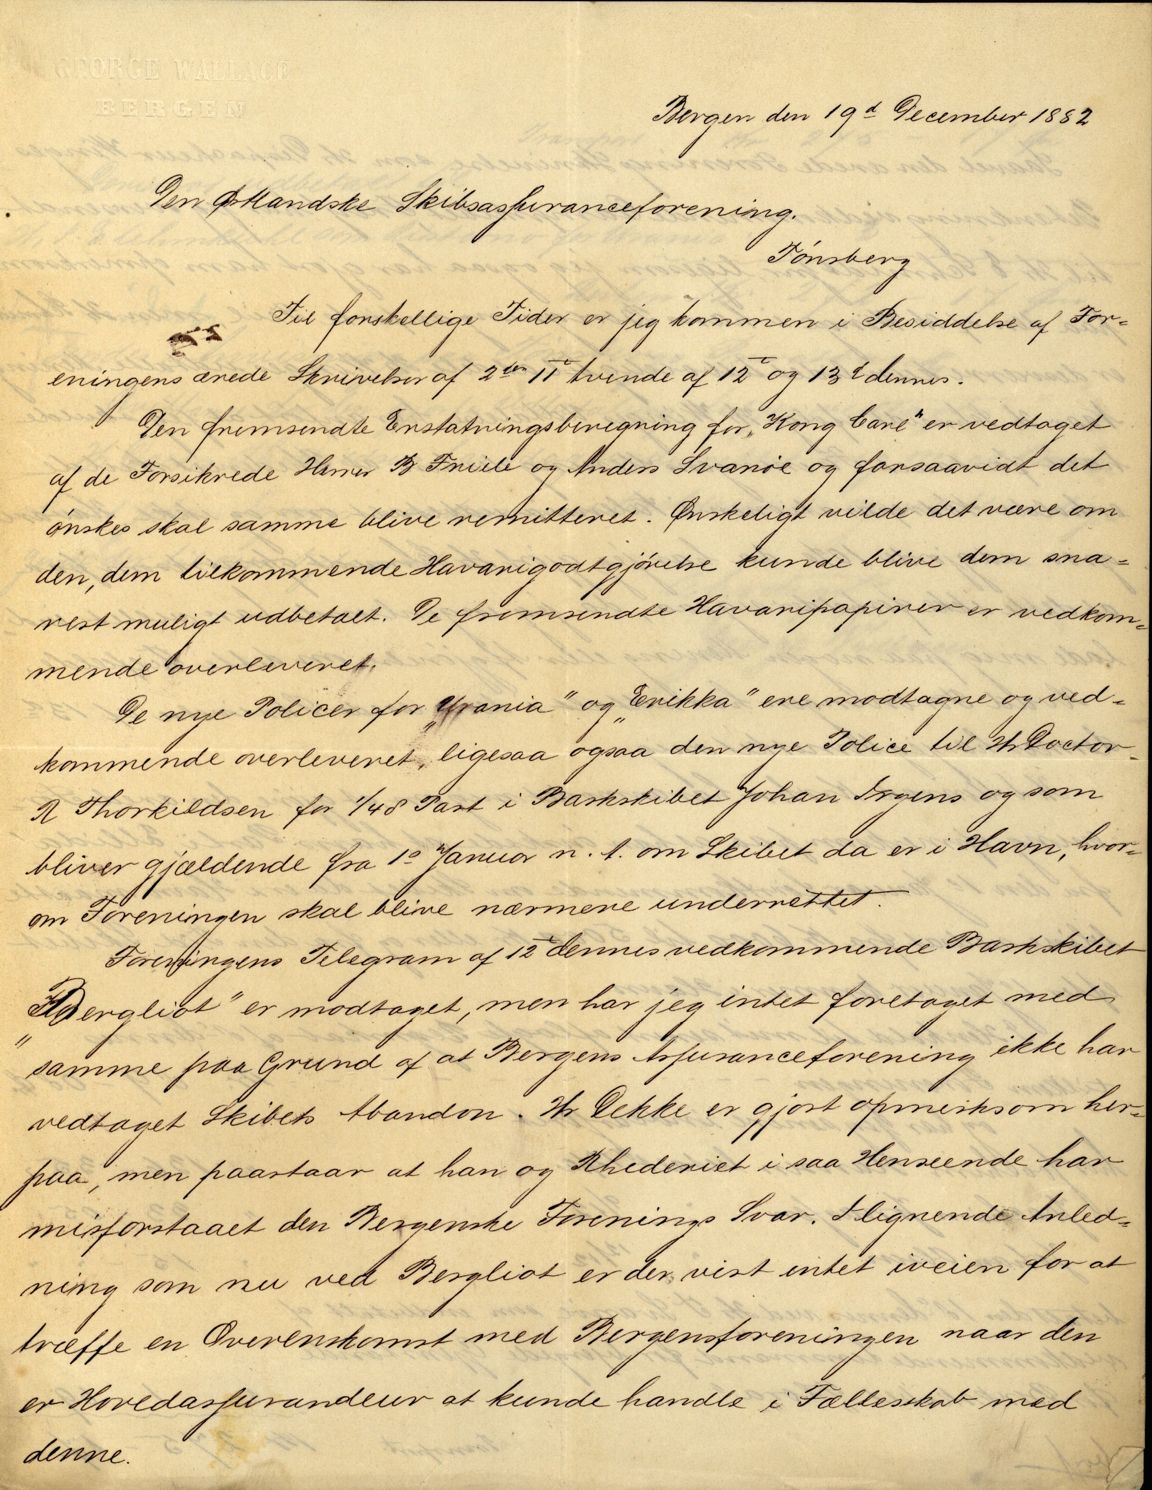 GEORGE WALLACE
BERGEN
Bergen den 19d December 1882
Den Østlandske Skibsassuranceforening.
Tønsberg
Til forskellige Tider er jeg kommen i Besiddelse af For-
eningens ærede Skrivelser af 2den 11te tvende af 12te og 13de dennes.
Den fremsendte Erstatningsberegning for "Kong Carl" er vedtaget
af de Forsikrede Herrer B Friele og Anders Svanøe og forsaavidt det
ønskes skal samme blive remitteret. Ønskeligt vilde det være om
den, dem tilkommende Havarigodtgjørelse kunde blive dem sna-
rest muligt udbetalt. De fremsendte Havaripapirer er vedkom-
mende overleveret.
De nye Policer for "Urania" og "Erikka" ere modtagne og ved-
kommende overleveret, ligesaa ogsaa den nye Police til Hr Doctor
R Thorkildsen for 1/48 Part i Barkskibet Johan Irgens og som
bliver gjældende fra 1o Januar n. A. om Skibet da er i Havn, hvor-
om Foreningen skal blive nærmere underrettet.
Foreningens Telegram af 12te dennes vedkommende Barkskibet
"Bergliot" er modtaget, men har jeg intet foretaget med
samme paa Grund af at Bergens Assuranceforening ikke har
vedtaget Skibets Abandon. Hr Dekke er gjort opmerksom her-
paa, men paastaar at han og Rhederiet i saa Henseende har
misforstaaet den Bergenske Forenings Svar. I lignende Anled-
ning som nu ved Bergliot er der vist intet iveien for at
træffe en Overenskomst med Bergensforeningen naar den
er Hovedassurandeur at kunde handle i Fællesskab med
denne.